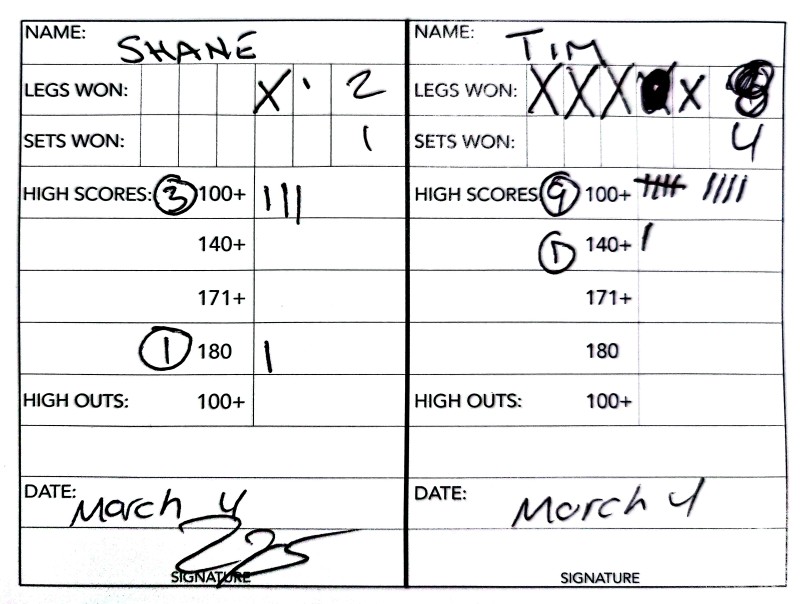 NAME: SHANE
LEGS WON: X ' 2
SETS WON: 1
HIGH SCORES: 3 100+ |||
140+
171+
1 180 |
HIGH OUTS: 100+
DATE: March 4
SIGNATURE
NAME: TIM
LEGS WON: X X X X
SETS WON: 4
HIGH SCORES 9 100+ |||| ||||
1 140+ |
171+
180
HIGH OUTS: 100+
DATE: March 4
SIGNATURE